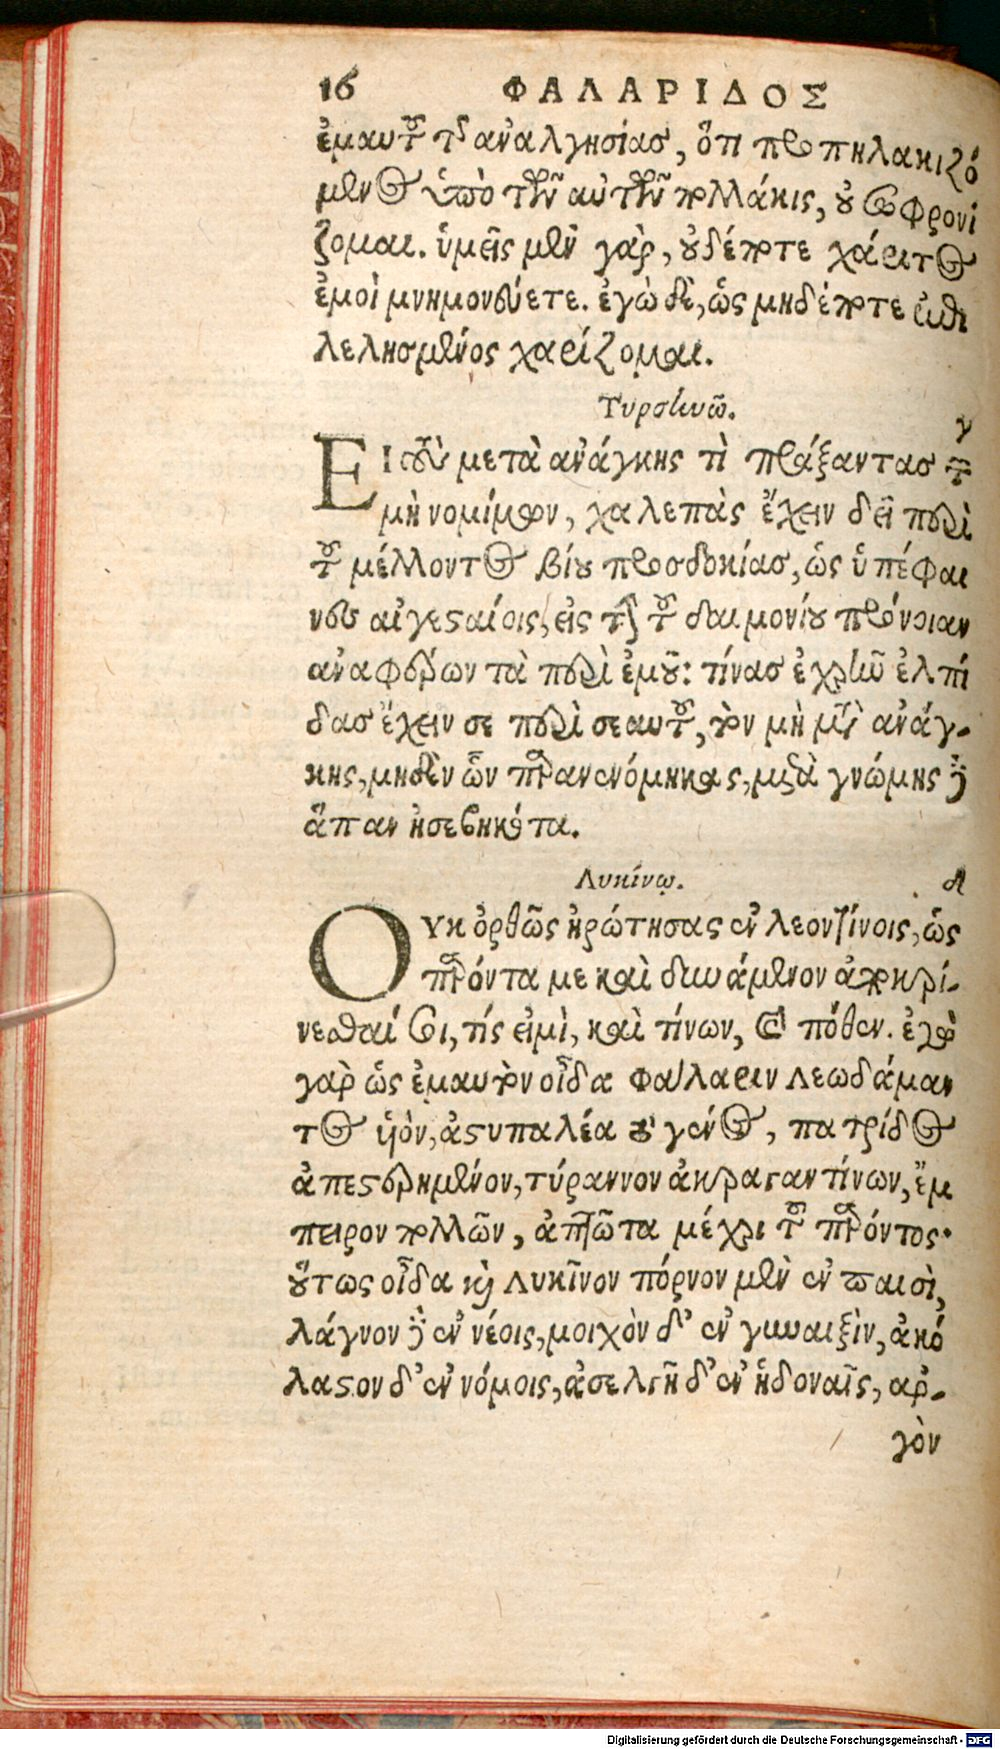 16 ΦΑΛΑΡΙΔΟΣ
ἐμαυτοῦ τῆς ἀναλγησίας, ὅτι προπηλακιζό
μενος ὑπὸ τῶν αὐτῶν πολλάκις, οὐ σωφρονί
ζομαι. ὑμεῖς μὲν γὰρ, οὐδέποτε χάριτος
ἐμοὶ μνημονεύετε. ἐγὼ δὲ, ὡς μηδέποτε ἐπι
λελησμένος χαρίζομαι.
Τυρσηνῷ. γ
ΕΙ τοὺς μετὰ ἀνάγκης τὶ πράξαντας τῶν
μὴ νομίμων, χαλεπὰς ἔχειν δεῖ περὶ
τοῦ μέλλοντος βίου προσδοκίας, ὡς ὑπέφαι
νες αἰγεσταίοις, εἰς τὴν τοῦ δαιμονίου πρόνοιαν
ἀναφέρων τὰ περὶ ἐμοῦ: τίνας ἐχρῆν ἐλπί
δας ἔχειν σε περὶ σεαυτοῦ, τὸν μὴ μετ' ἀνάγ-
κης, μηδὲν ὧν παρανενόμηκας, μετὰ γνώμης δ'
ἅπαν ἠσεβηκότα.
Λυκίνῳ. δ
ΟΥκ ὀρθῶς ἠρώτησας ἐν λεοντίνοις, ὡς
παρόντα με καὶ δυνάμενον ἀποκρί-
νεσθαί σοι, τίς εἰμὶ, καὶ τίνων, καὶ πόθεν. ἐγὼ
γὰρ ὡς ἐμαυτὸν οἶδα Φάλαριν Λεωδάμαν
τος υἱὸν, ἀστυπαλέα τὸ γένος, πατρίδος
ἀπεστερημένον, τύραννον ἀκραγαντίνων, ἔμ
πειρον πολλῶν, ἀηττῶτα μέχρι τοῦ παρόντος·
οὕτως οἶδα καὶ Λυκῖνον πόρνον μὲν ἐν παισὶ,
λάγνον δ' ἐν νέοις, μοιχὸν δ' ἐν γυναιξὶν, ἀκό
λαστον δ' ἐν νόμοις, ἀσελγῆ δ' ἐν ἡδοναῖς, ἀρ-
γὸν
Digitalisierung gefördert durch die Deutsche Forschungsgemeinschaft - DFG